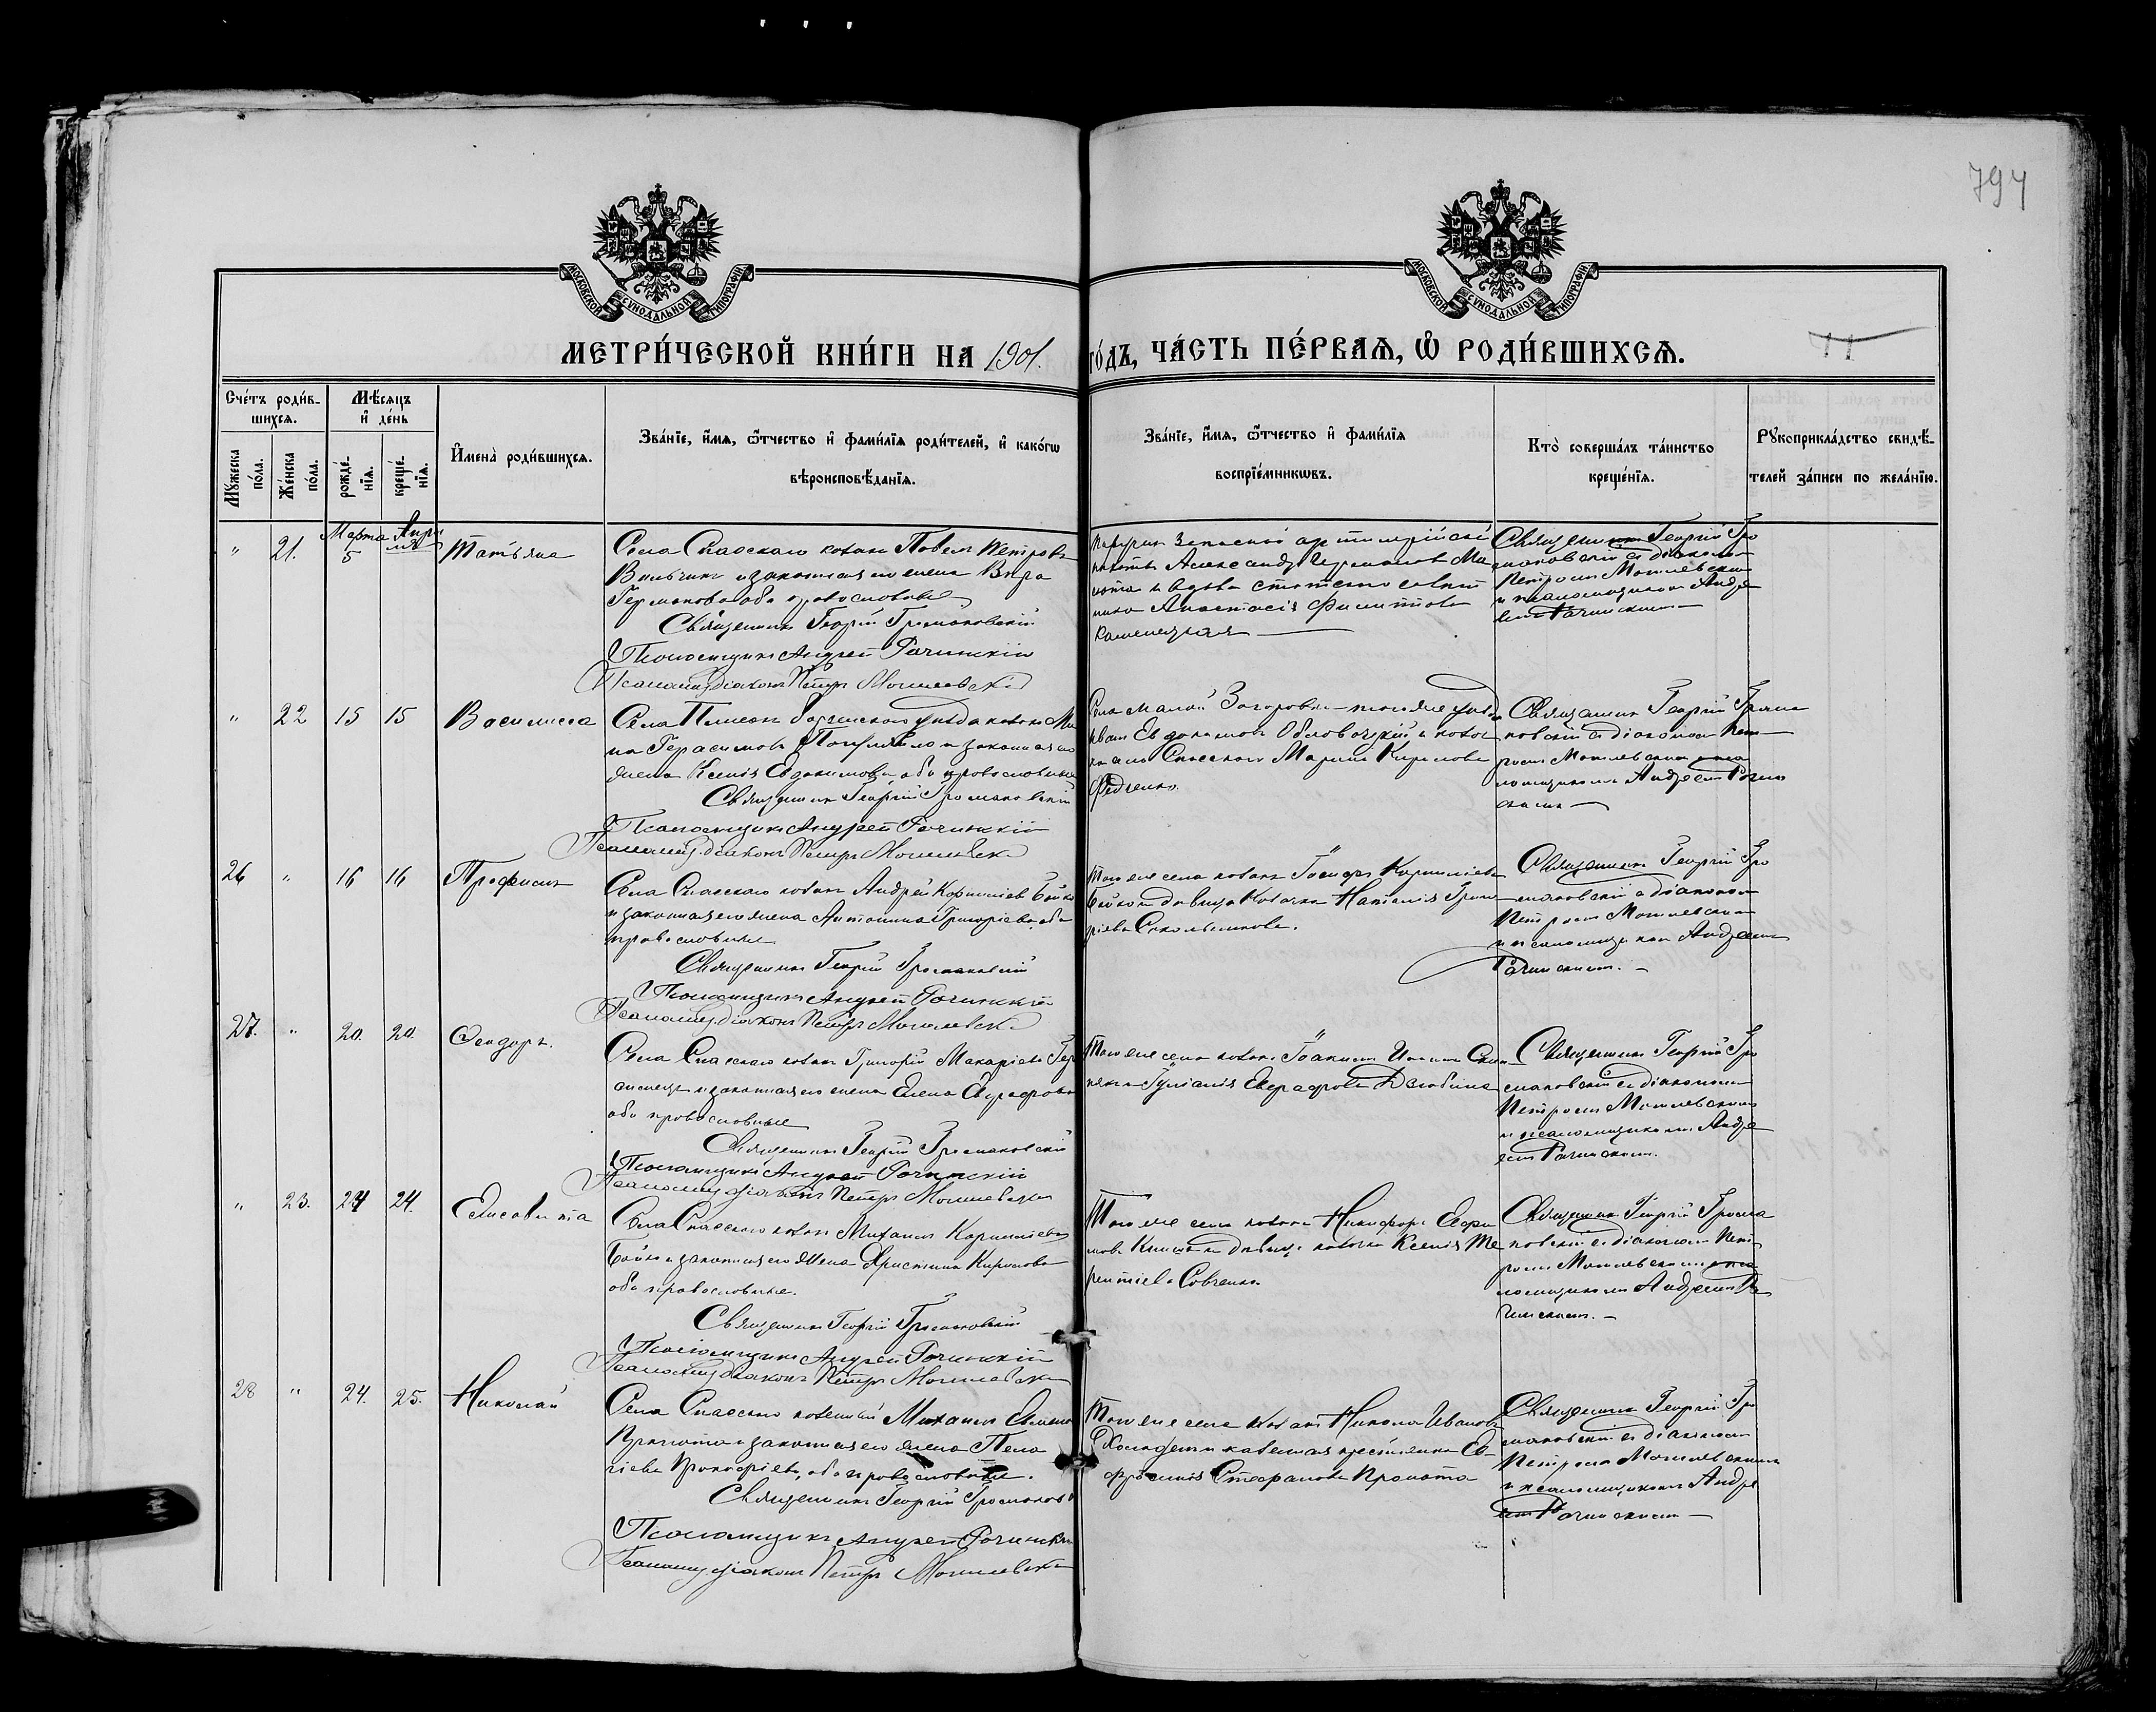 794
МОСКОВСКОЙ СѴНОДАЛЬНОЙ ТИПОГРАФІИ
МОСКОВСКОЙ СѴНОДАЛЬНОЙ ТИПОГРАФІИ
МЕТРИ́ЧЕСКОЙ КНИ́ГИ НА 1901. ГО́ДЪ, ЧА́СТЬ ПЕ́РВАѦ, Ѡ РОДИ́ВШИХСѦ.
11
Сче́тъ роди́вшихсѧ.
Мꙋжеска по́ла.
Же́нска по́ла.
Мѣсѧцъ и де́нь
рожде́нїѧ.
креще́нїѧ.
И҆мена̀ роди́вшихсѧ.
Зва́нїе, и҆́мѧ, ѻ҆́тчество и҆ фами́лїѧ роди́телей, и҆ како́гѡ
вѣроисповѣ́данїѧ.
Зва́нїе, и҆́мѧ, ѻ҆́тчество и҆ фами́лїѧ
воспрїе́мникѡвъ.
Кто̀ соверша́лъ та́инство
креще́нїѧ.
Рꙋкоприкла́дство свидѣ́-
телей за́писи по жела́нїю.
" 21. Марта 5 Апрѣля Татьяна
Села Спасскаго козакъ Павелъ Петровъ
и законная его жена Вѣра
Германова оба православные
Священникъ Георгій Громаковскій
Псаломщикъ Андрей Рачинскій
Псаломщ. діаконъ Петръ Могилевскій
Александръ
и вдова статскаго совѣт
ника Анастасія Филиппова
Каменецкая
Священникъ Георгій Гро
маковскій съ діакономъ
Петромъ Могилевскимъ
и псаломщикомъ Андре
емъ Рачинскимъ
" 22 15 15 Василисса
Села
на Герасимовъ и законная его
жена Ксенія Евдокимова, оба православные
Священникъ Георгій Громаковскій
Псаломщикъ Андрей Рачинскій
Псаломщ. діаконъ Петръ Могилевскій
Села Малой Загоровки того же уѣзда
Евдокимовъ и козач
ка села Спасскаго Марія Кирилова
Федченко.
Священникъ Георгій Грома
ковскій съ діакономъ Пет
ромъ Могилевскимъ и пса
ломщикомъ Андреемъ Рачин
скимъ
26 " 16 16
Села Спасскаго козакъ Андрей Корниліевъ Бойко
и законная его жена Антонина Григоріева, оба
православные
Священникъ Георгій Громаковскій
Псаломщикъ Андрей Рачинскій
Псаломщ. діаконъ Петръ Могилевскій
Того же села козакъ Іосифъ Корниліевъ
Бойко и дѣвица козачка Наталія Григо
ріева Сокольникова.
Священникъ Георгій Гро
маковскій съ діакономъ
Петромъ Могилевскимъ
и псаломщикомъ Андреемъ
Рачинскимъ.
27. " 20. 20. Ѳеодоръ.
Села Спасскаго козакъ Григорій Макаріевъ
и законная его жена Елена Евграфова
оба православные
Священникъ Георгій Громаковскій
Псаломщикъ Андрей Рачинскій
Псаломщ. діаконъ Петръ Могилевскій
Того же села козакъ Іоакимъ
Іуліанія Евграфова
Священникъ Георгій Гро
маковскій съ діакономъ
Петромъ Могилевскимъ
и псаломщикомъ Андре
емъ Рачинскимъ.
" 23. 24 24. Елисавета
Села Спасскаго козакъ Михаилъ Корниліевъ
Бойко и законная его жена Христина Кирилова
оба православные.
Священникъ Георгій Громаковскій
Псаломщикъ Андрей Рачинскій
Псаломщ. діаконъ Петръ Могилевскій
Того же села козакъ Никифоръ Ефи
мовъ и дѣвица козачка Ксенія Те
рентіева Савченко
Священникъ Георгій Грома
ковскій съ діакономъ Пет
ромъ Могилевскимъ и пса
ломщикомъ Андреемъ Ра
чинскимъ.
28 " 24. 25. Николай
Села Спасскаго казенный Михаилъ
и законная его жена Пела
гіева Прокофіева, оба православные.
Священникъ Георгій Громаковскій
Псаломщикъ Андрей Рачинскій
Псаломщ. діаконъ Петръ Могилевскій
Того же села козакъ Никола Ивановъ
и казенная крестьянка Ев
фросинія Стефанова
Священникъ Георгій Гро
маковскій съ діакономъ
Петромъ Могилевскимъ
и псаломщикомъ Андре
емъ Рачинскимъ